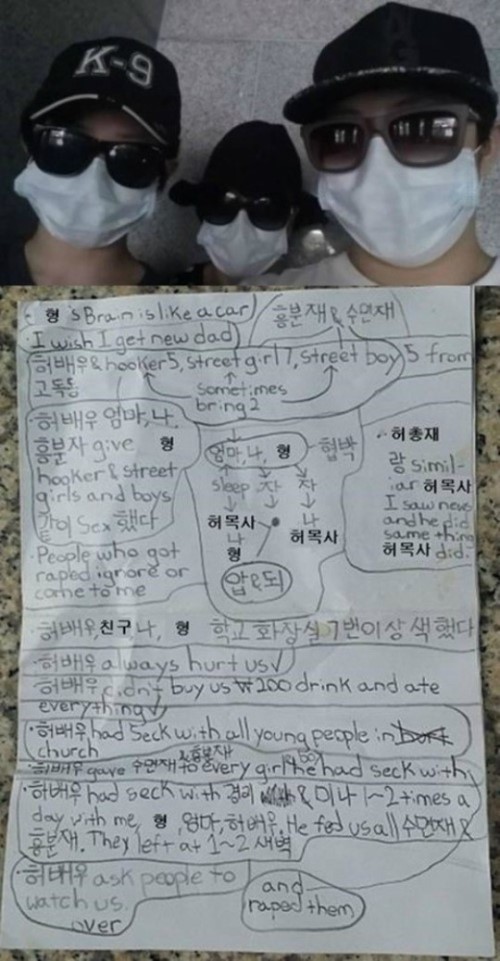 K-9
· 형's Brain is like a car
· I wish I get new dad
흥분재 & 수면재
허배우 & hooker 5, street girl 7, street boy 5 from
고독동
sometimes
bring 2
· 허배우 엄마, 나,
흥분자 give 형
hooker & street
girls and boys
같이 sex 했다
· People who got
raped ignore or
come to me
엄마, 나, 형 협박
sleep 자 자
허목사 나
나 허목사
형
압&되
· 허총재
랑 simil-
iar 허목사
I saw news
and he did
same thing
허목사 did.
· 허배우, 친구, 나, 형 학교 화장실 7번이상 색했다
· 허배우 always hurt us
· 허배우 didn't buy us ₩200 drink and ate
everything
· 허배우 had seck with all young people in
church
& 흥분재
· 허배우 gave 수면재 to every girl he had seck with
· 허배우 had seck with & 미나 1~2 times a
day with me, 형, 엄마, 허배우. He fed us all 수면재 &
흥분재. They left at 1~2 새벽
· 허배우 ask people to
watch us.
over
and
raped them